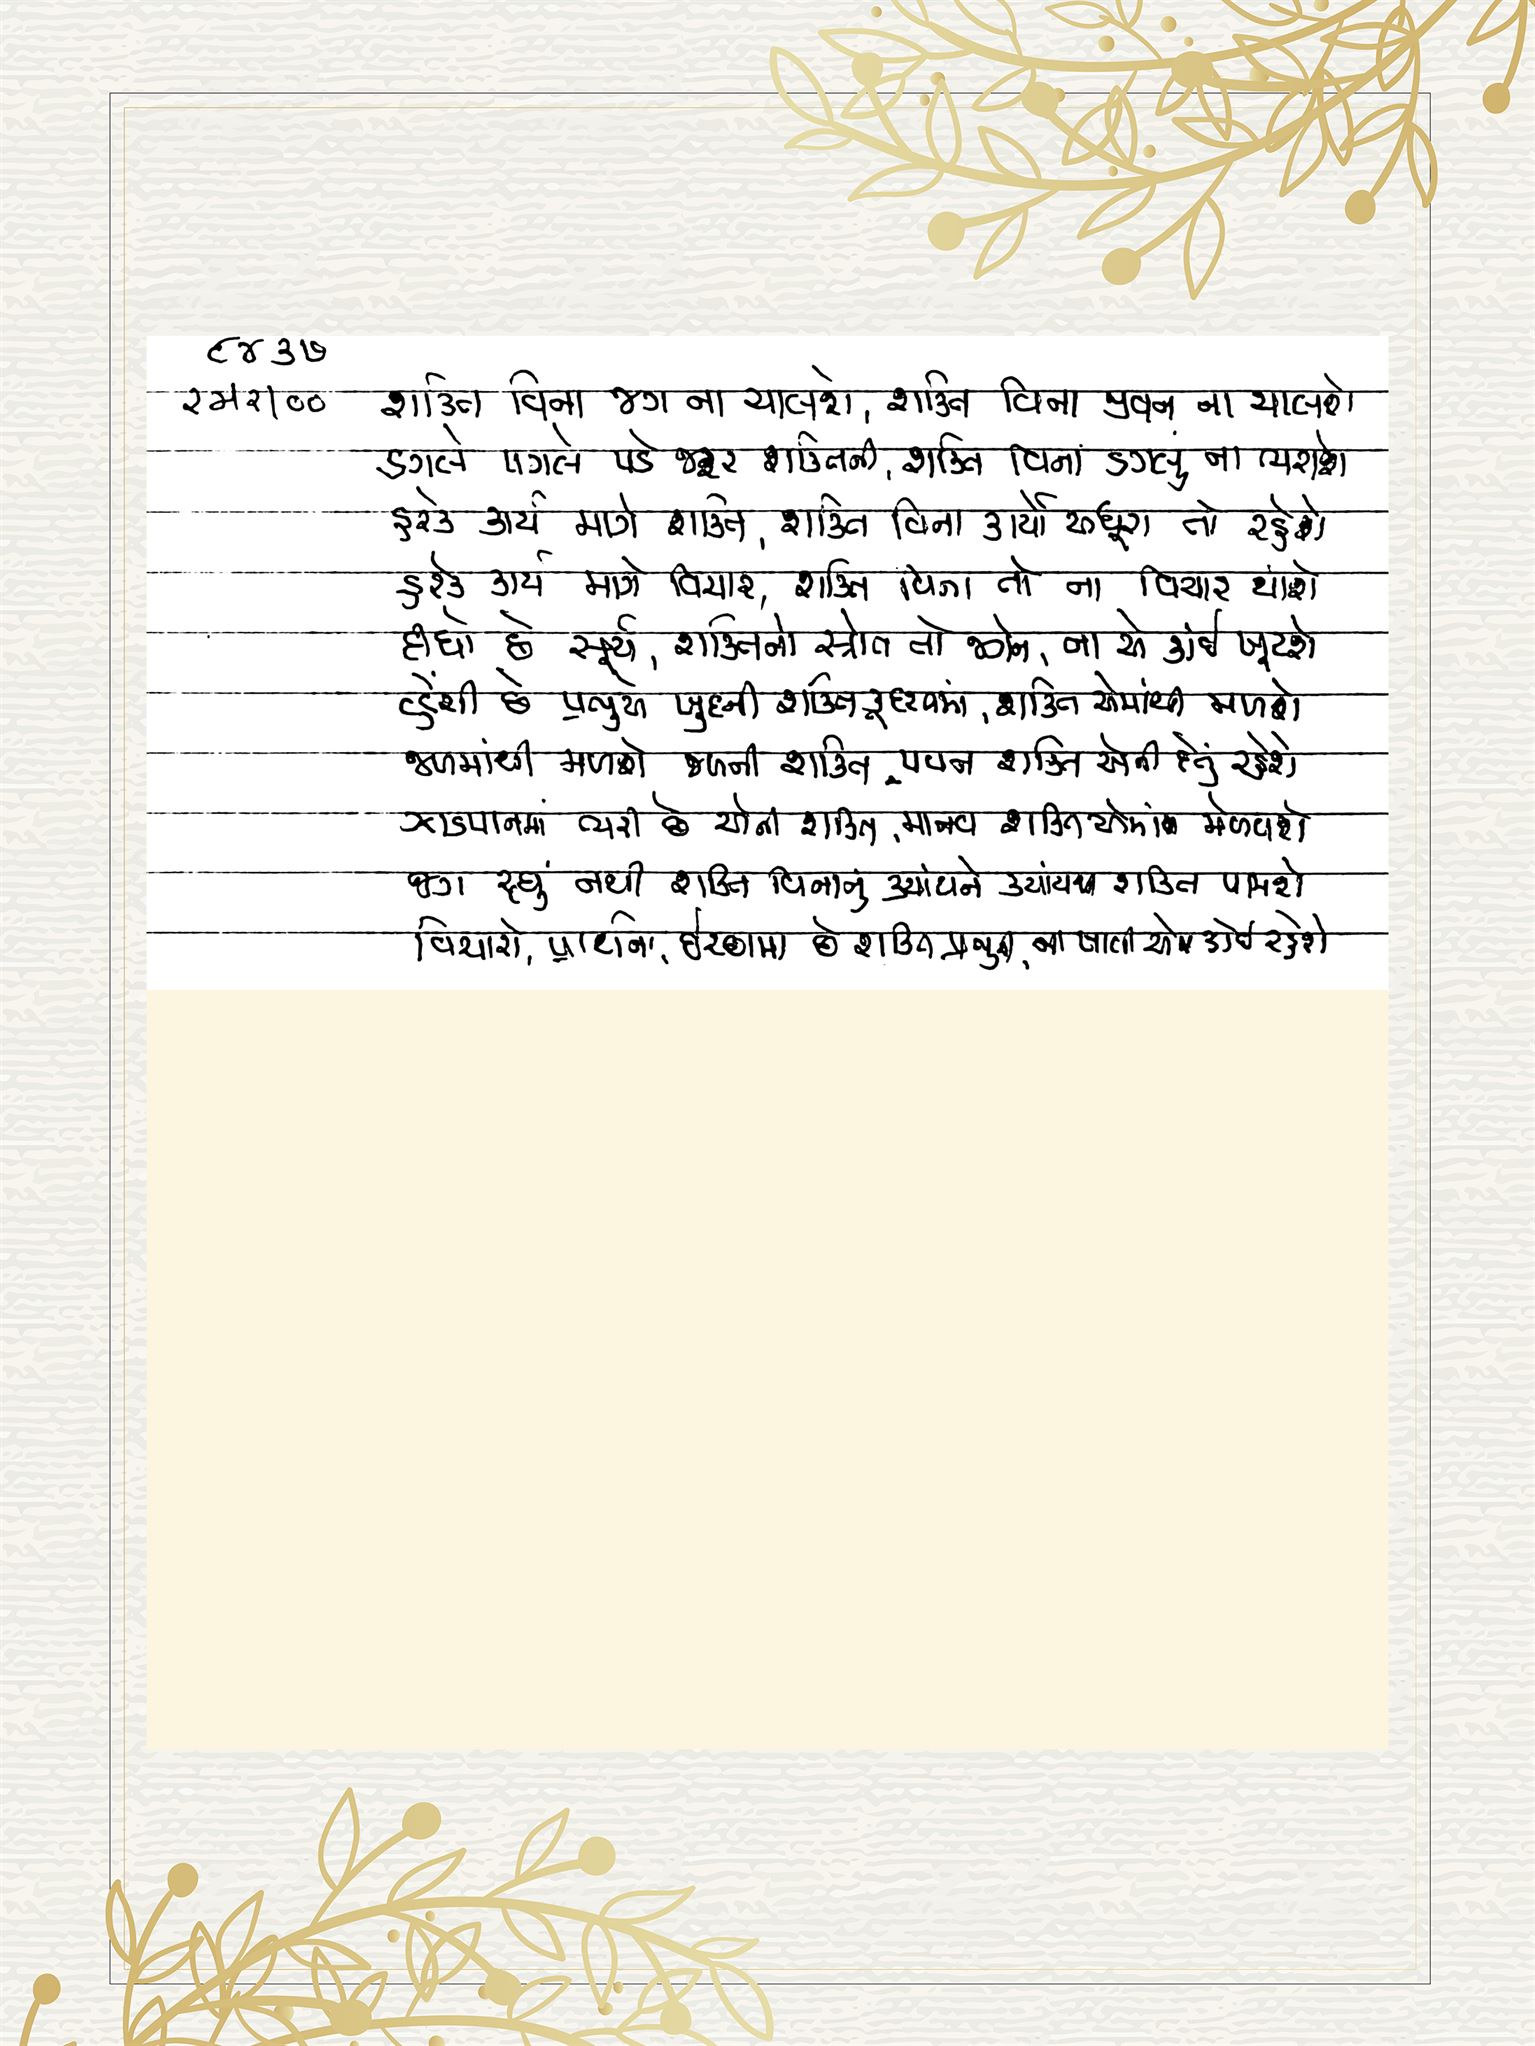 ૯૪૩૭
શક્તિ વિના જગ ના ચાલશે, શક્તિ વિના જીવન ના ચાલશે
ડગલે પગલે પડે જરૂર શક્તિની, શક્તિ વિના ડગલું ના ભરાશે
હરેક કાર્ય માગે શક્તિ, શક્તિ વિના કાર્યો અધૂરા તો રહેશે
હરેક કાર્ય માગે વિચાર, શક્તિ વિના તો ના વિચાર થાશે
દીધો છે સૂર્ય, શક્તિનો સ્ત્રોત તો જેને, ના એ કાંઈ ખૂટશે
વ્હેંચી છે પ્રભુએ ખુદની શક્તિ કુદરતમાં, શક્તિ એમાંથી મળશે
જળમાંથી મળશે જળની શક્તિ, પવન શક્તિ એની દેતું રહેશે
ઝાડપાનમાં ભરી છે એની શક્તિ, માનવ શક્તિ એમાં મેળવશે
જગ રહ્યું નથી શક્તિ વિનાનું ક્યાંયને ક્યાંય શક્તિ પામશે
વિચારો, પ્રાર્થના, ઈચ્છામાં છે શક્તિ પ્રભુની, ના ખાલી એમ કોઈ રહેશે